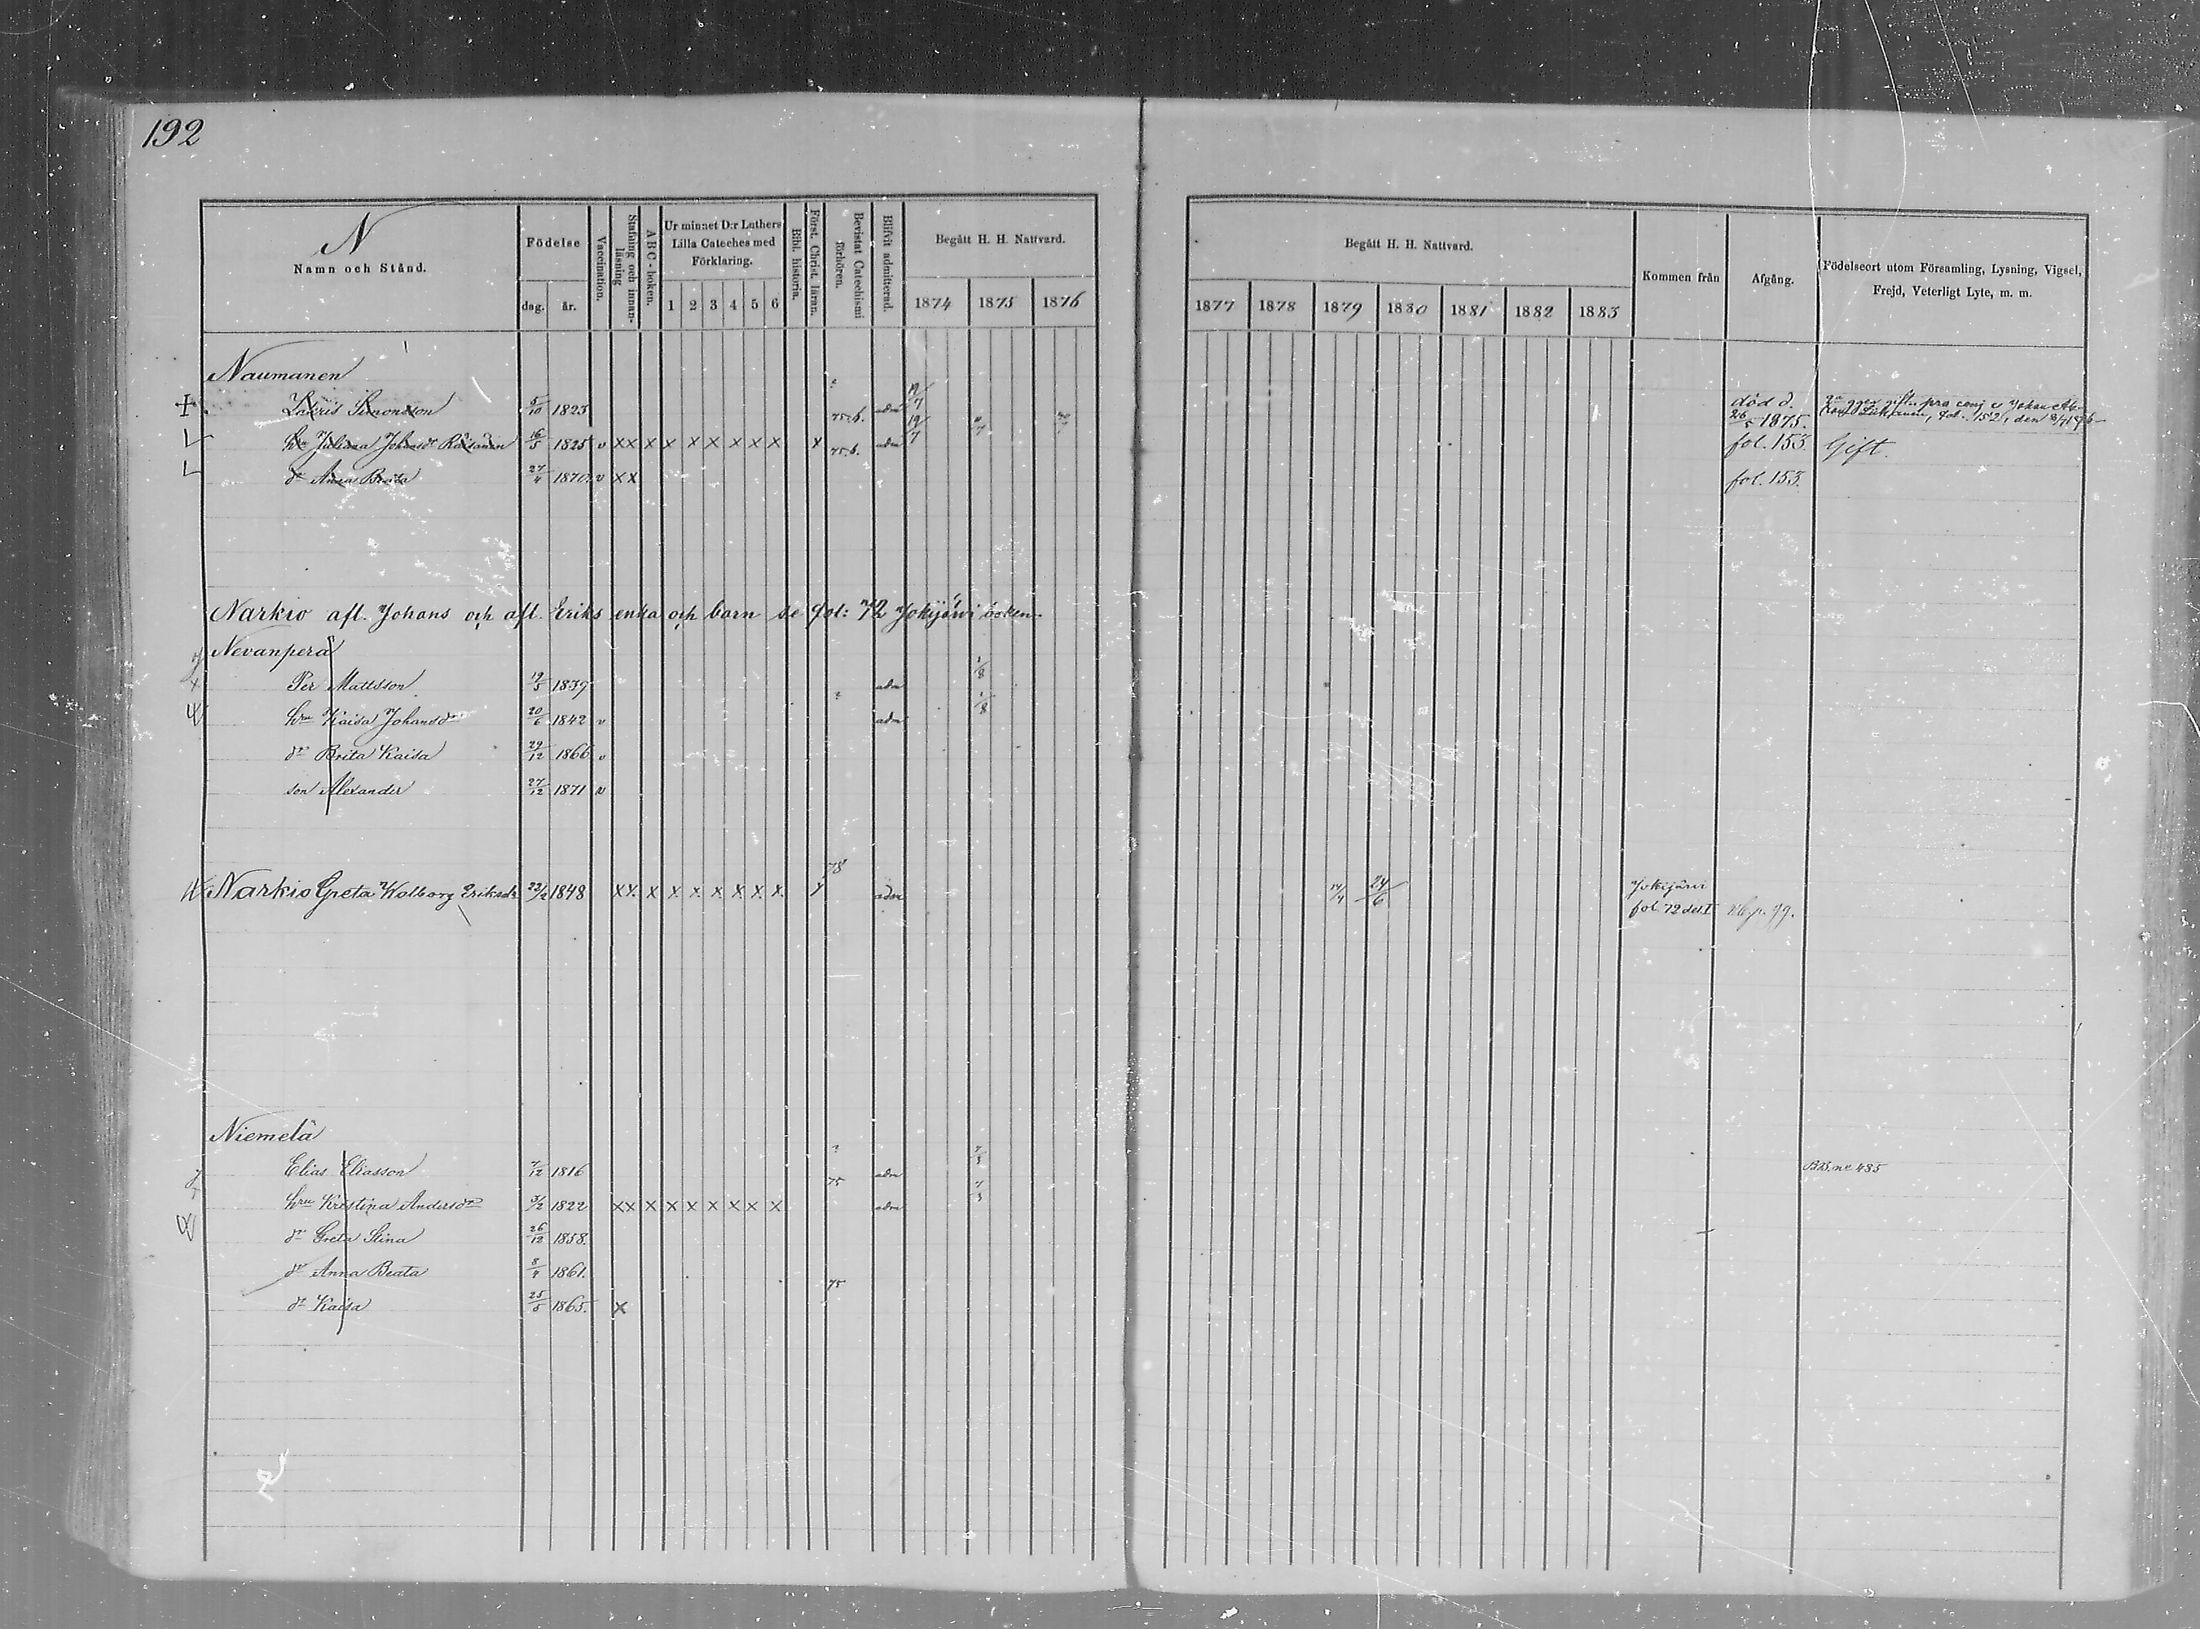 192
N
Namn och Stånd.
Födelse
dag.
år.
Vaccination.
Stafning och innan-läsning
A B C - boken.
Ur minnet D:r Luthers
Lilla Cateches med
Förklaring.
1 2 3 4 5 6
Bibl. historia.
Först. Christ. läran.
Bevistat Catechismi förhören.
Blifvit admitterad.
Begått H. H. Nattvard.
1874 1875 1876
Begått H. H. Nattvard.
1877 1878 1879 1880 1881 1882 1883
Kommen från
Afgång.
Födelseort utom Församling, Lysning, Vigsel,
Frejd, Veterligt Lyte, m. m.
Naumanen
Simonsson 5/10 1823 75.b. adm 19/7 död d. 26/5 1875.
hru Juliana Johansdr Räisänen 16/5 1825 v x x x x x x x x x x 75.b. adm 19/7 fol. 153. Gift.
dr Anna Brita 27/4 1870 v x x fol. 153.
Narkio afl. Johans och afl. Eriks enka och barn se fol: 72 Jokijärvi boken
Nevanperä
Per Mattsson 19/5 1839 adm 1/8
hru Kaisa Johansdr 20/6 1842 v adm 1/8
dr Brita Kaisa 29/12 1866 v
son Alexander 27/12 1871 v
78
Narkio Greta Walborg Eriksdr 22/2 1848 x x x x x x x x x adm 24/6 Jokijärvi
fol 72 del I
Niemelä
Elias Eliasson 7/12 1816 75 adm 7/3
hru Kristina Andersdr 3/2 1822 x x x x x x x x x adm 7/3
dr Greta Stina 26/12 1858.
dr Anna Beata 8/4 1861. 75
dr Kaisa 25/5 1865. x